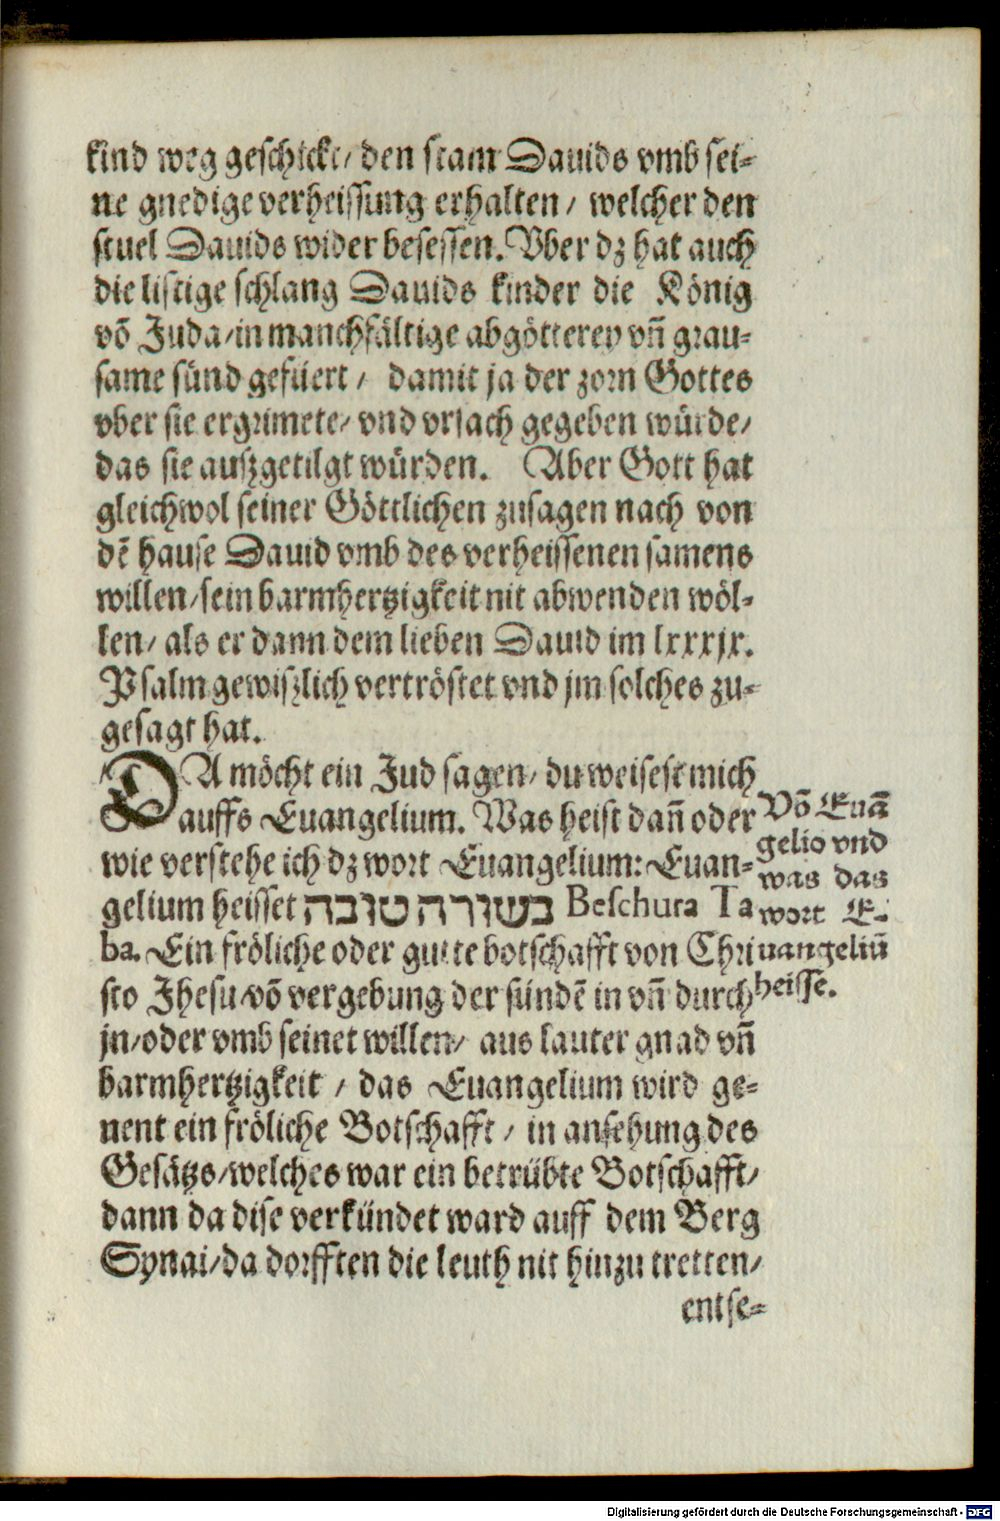 kind weg geschickt/ den stam Dauids vmb sei-
ne gnedige verheissung erhalten/ welcher den
stuel Dauids wider besessen. Vber dz hat auch
die listige schlang Dauids kinder die König
võ Juda/in manchfältige abgötterey vñ grau-
same sünd gefüert/ damit ja der zorn Gottes
vber sie ergrimete/ vnd vrsach gegeben würde/
das sie auszgetilgt würden. Aber Gott hat
gleichwol seiner Göttlichen zusagen nach von
dẽ hause Dauid vmb des verheissenen samens
willen/sein barmhertzigkeit nit abwenden wöl-
len/ als er dann dem lieben Dauid im lxxxjx.
Psalm gewiszlich vertröstet vnd jm solches zu-
gesagt hat.
DA möcht ein Jud sagen/ du weisest mich
auffs Euangelium. Was heist dañ oder
wie verstehe ich dz wort Euangelium: Euan-
gelium heisset בשורה טובה Beschura Ta
ba. Ein fröliche oder gutte botschafft von Chri
sto Jhesu/võ vergebung der sündẽ in vñ durch
jn/oder vmb seinet willen/ aus lauter gnad vñ
barmhertzigkeit / das Euangelium wird ge-
nent ein fröliche Botschafft / in ansehung des
Gesätzs/welches war ein betrübte Botschafft/
dann da dise verkündet ward auff dem Berg
Synai/da dorfften die leuth nit hinzu tretten/
entse-
Võ Euã
gelio vnd
was das
wort E-
uangeliũ
heisse.
Digitalisierung gefördert durch die Deutsche Forschungsgemeinschaft - DFG